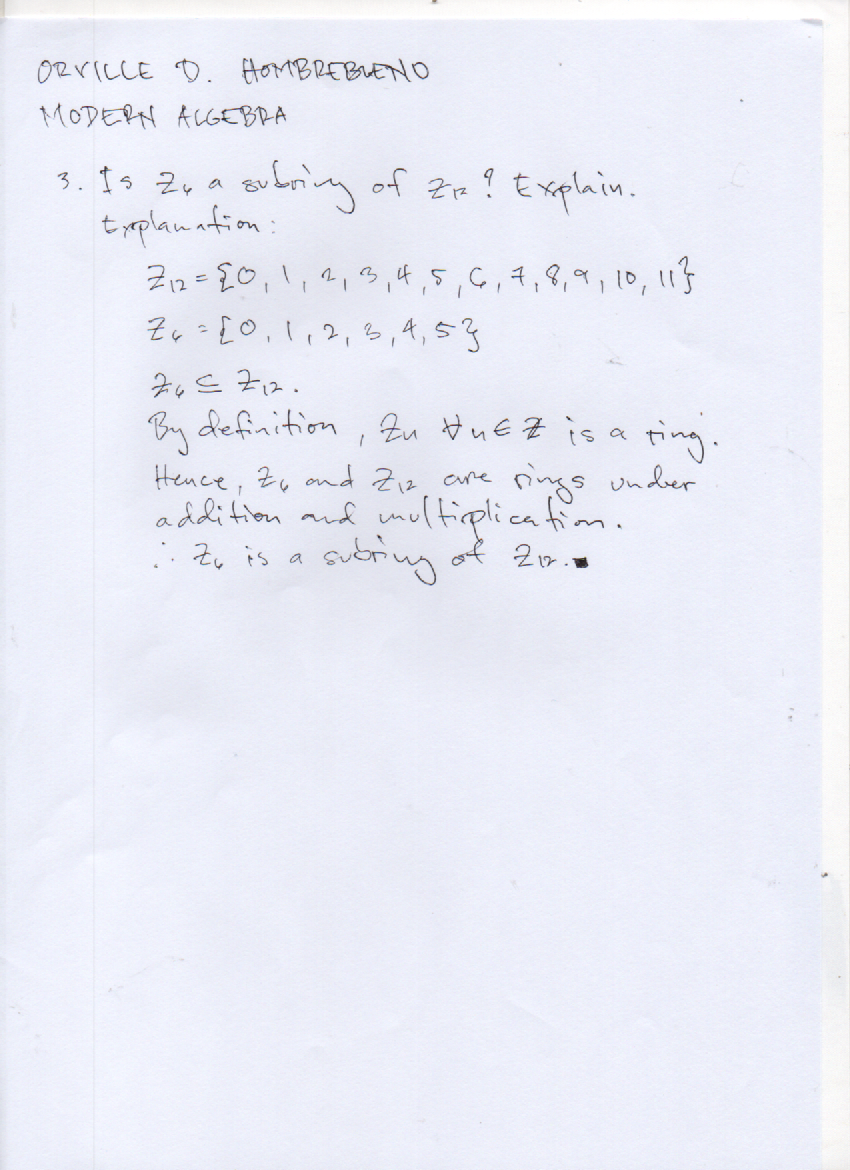 ORVILLE D. HOMBREBUENO
MODERN ALGEBRA
3. Is Z₆ a subring of Z₁₂? Explain.
Explanation:
Z₁₂ = {0, 1, 2, 3, 4, 5, 6, 7, 8, 9, 10, 11}
Z₆ = {0, 1, 2, 3, 4, 5}
Z₆ ⊆ Z₁₂.
By definition, Zn ∀n∈ℤ is a ring.
Hence, Z₆ and Z₁₂ are rings under
addition and multiplication.
∴ Z₆ is a subring of Z₁₂. ■